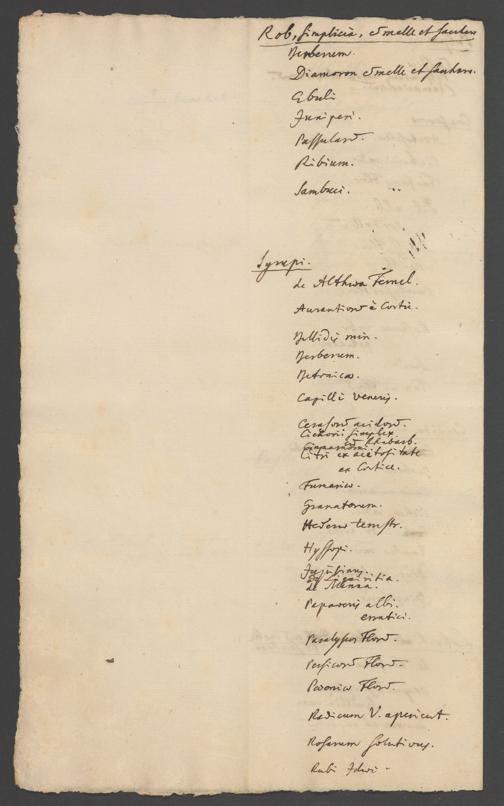 Rob, simplicia, è melle et sacchar.
Berberum.
Diamoron è melle et sacchar.
Ebuli
Juniperi.
Passular.
Ribium.
Sambuci.
Syrupi.
de Althaea Fernel.
Aurantior è Cortic.
Bellidis min.
Berberum.
Betonicae.
Capilli veneris.
Cerasor acidor.
Cichorii simplex
Rhabarb.
Cinnamomi.
Citri ex acetositate
ex Cortice.
Fumariae.
Granatorum.
Hederae terrestr.
Hyssopi.
Jujubinus.
Liquiritia.
de Mensa.
Papaveris albi.
erratici.
Paralyseos Flor.
Persicor Flor.
Poeoniae Flor.
Radicum V. aperient.
Rosarum solutivus.
Rubi Idaei